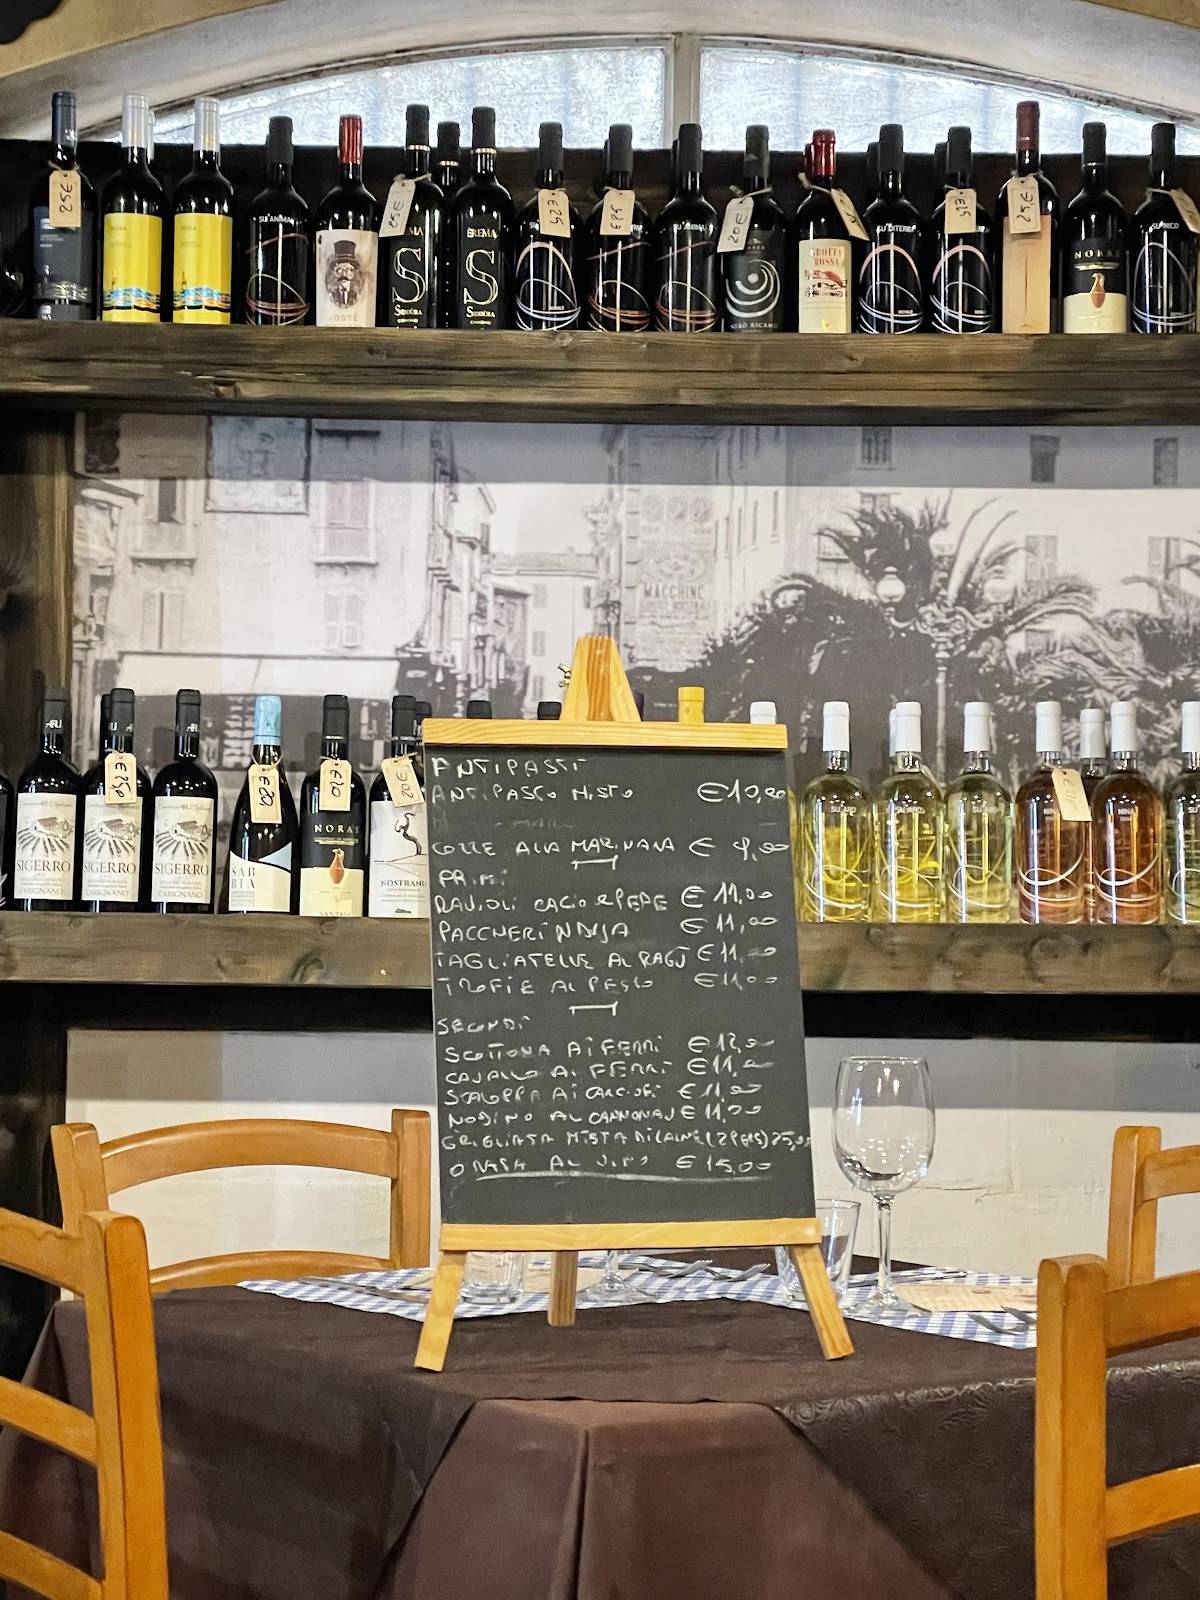 25€
SU'ANIMA
25€
BREMA
S
SERDÙRA
€25
€25
SU'ANIMA
20€
NERO RICAMO
GROTTA
ROSSA
SU'DITERRA
€25
25€
NORAS
SU'NICO
MACCHINE
SIGERRO
CARIGNANO
SIGERRO
CARIGNANO
SIGERRO
CARIGNANO
€20
SAB
BIA
NORAS
NOSTRANU
ANTIPASTI
ANTIPASTO MISTO €10,00
COZZE ALLA MARINARA € 9,00
PRIMI
RAVIOLI CACIO e PEPE € 11,00
PACCHERI NDUJA € 11,00
TAGLIATELLE AL RAGÙ € 11,00
TROFIE AL PESTO € 11,00
SECONDI
SCOTTONA AI FERRI € 12,00
CAVALLO AI FERRI € 11,00
AI CARCIOFI € 11,00
NODINO AL CANNONAU € 11,00
GRIGLIATA MISTA DI CARNE (2 PERS) 25,00
AL € 15,00
SU'ARD
SU'ARD
SU'ARD
NINA
NINA